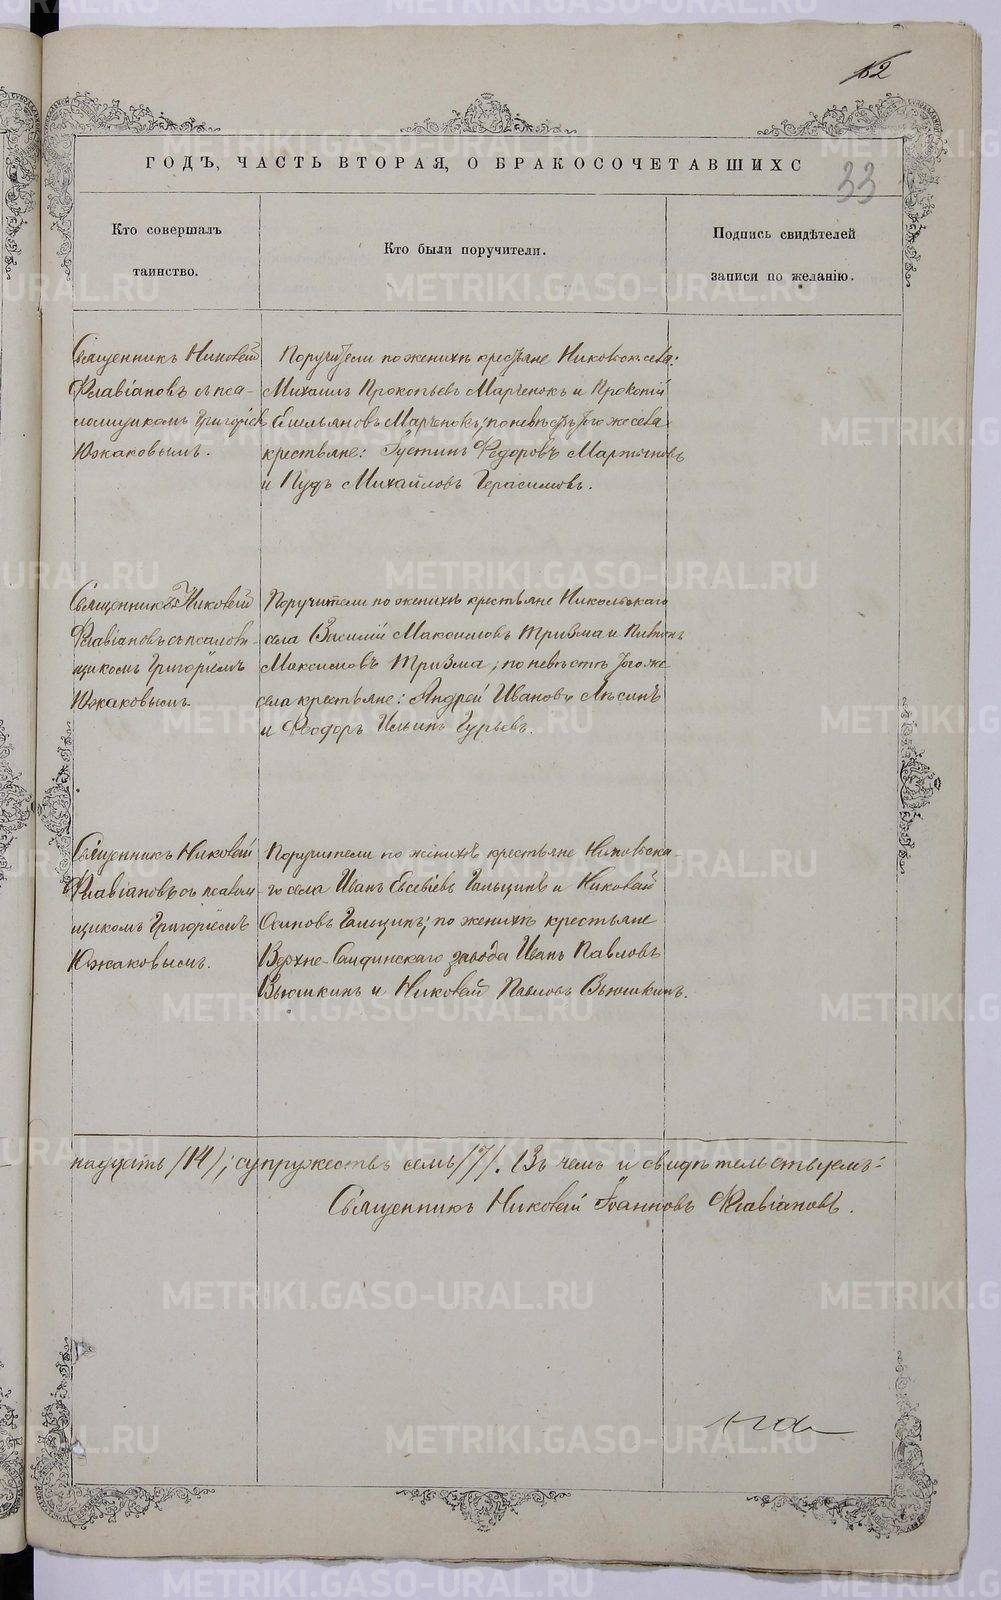 62
ГОДЪ, ЧАСТЬ ВТОРАЯ, О БРАКОСОЧЕТАВШИХС
33
Кто совершалъ
таинство.
Кто были поручители.
Подпись свидѣтелей
записи по желанію.
Священникъ Николай
Флавіановъ съ пса-
ломщикомъ Григоріемъ
Южаковымъ.
Поручители по женихѣ крестьяне Никольск. села:
Михаилъ Прокопьевъ Марченокъ и Прокопій
Емельяновъ Марченокъ; по невѣстѣ того же села
крестьяне: Густинъ Ѳедоровъ Мартыновъ
и Пудъ Михайловъ Герасимовъ.
Священникъ Николай
Флавіановъ съ псалом-
щикомъ Григоріемъ
Южаковымъ
Поручители по женихѣ крестьяне Никольскаго
села Василій Максимовъ Тризма и
Максимовъ Тризма; по невѣстѣ того же
села крестьяне: Андрей Ивановъ Лѣсинъ
и Ѳеодоръ Ильинъ Гурьевъ.
Священникъ Николай
Флавіановъ съ псалом-
щикомъ Григоріемъ
Южаковымъ.
Поручители по женихѣ крестьяне Никольска-
го села Иванъ Евсевіевъ Гальцинъ и Николай
Осиповъ Гальцинъ; по женихѣ крестьяне
Верхне-Салдинскаго завода Иванъ Павловъ
Вьюшкинъ и Николай Павловъ Вьюшкинъ.
надцать /14/; супружествъ семь /7/. Въ чемъ и свидѣтельствуемъ:
Священникъ Николай Іоанновъ Флавіановъ.
METRIKI.GASO-URAL.RU